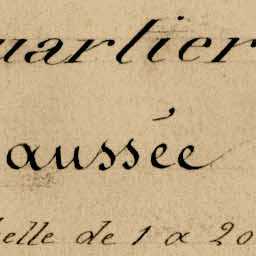 uartier
aussée
elle de 1 a 20